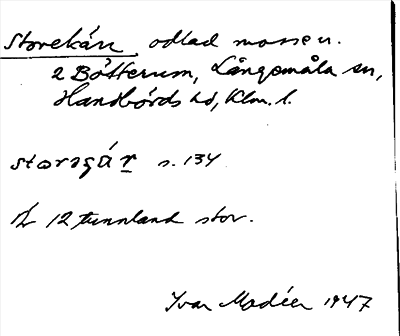 Storekärr, odlad mosse u.
2 Bötterum, Långemåla sn,
Handbörds hd, Klm. l.
storəgár s. 134
Är 12 tunnland stor.
Ivar Modéer 1947